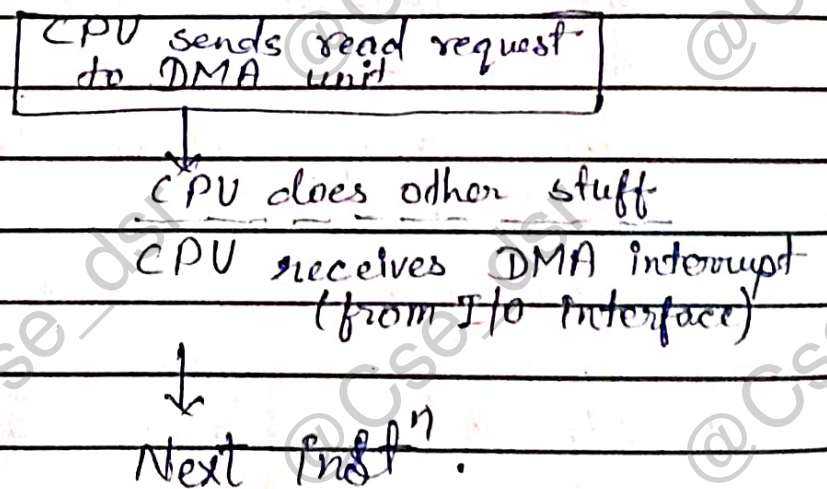 CPU sends read request
to DMA unit
CPU does other stuff
CPU receives DMA interrupt
(from I/O interface)
Next Instⁿ.
@Cse_dsr